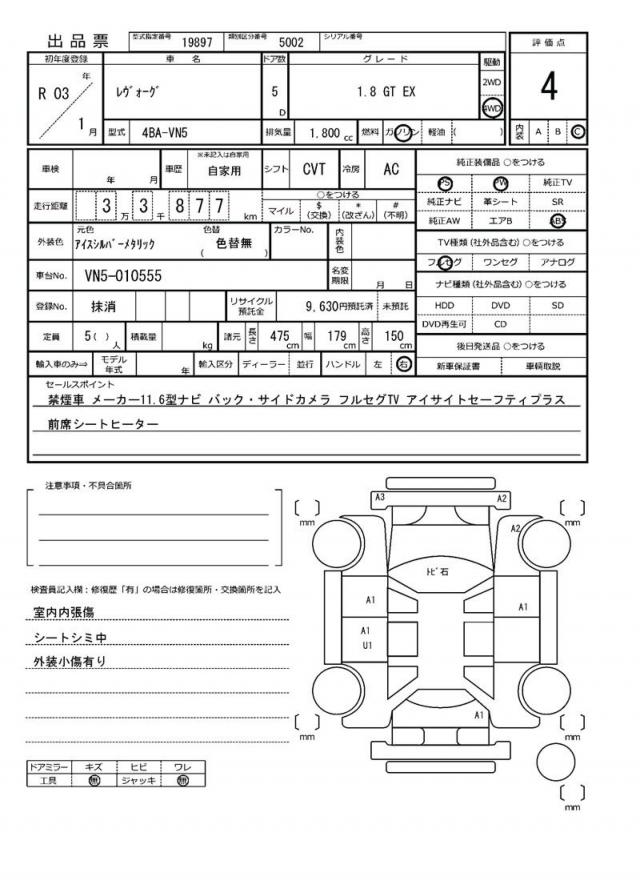 出品票 型式指定番号 19897 類別区分番号 5002 シリアル番号
評価点
初年度登録 車名 ドア数 グレード 駆動
R 03 年 1 月 ﾚｳﾞｫｰｸﾞ 5 D 1.8 GT EX 2WD 4WD
4
型式 4BA-VN5 排気量 1.800 cc 燃料 ガソリン 軽油 ( )
内装 A B C
車検 年 月 車歴 ※未記入は自家用 自家用 シフト CVT 冷房 AC
純正装備品 ○をつける
PS PW 純正TV
純正ナビ 革シート SR
純正AW エアB ABS
走行距離 3 万 3 千 8 7 7 km
○をつける
マイル $ (交換) * (改ざん) # (不明)
外装色 元色 ｱｲｽｼﾙﾊﾞｰﾒﾀﾘｯｸ 色替 ( 色替無 ) カラーNo. 内装色
TV種類 (社外品含む) ○をつける
フルセグ ワンセグ アナログ
車台No. VN5-010555 名変期限 月 日
ナビ種類 (社外品含む) ○をつける
HDD DVD SD
DVD再生可 CD
登録No. 抹消 リサイクル預託金 9,630円預託済 未預託
定員 5 ( ) 人 積載量 kg 諸元 長さ 475 cm 幅 179 cm 高さ 150 cm
後日発送品 ○をつける
新車保証書 車輌取説
輸入車のみ⇒ モデル年式 年 輸入区分 ディーラー 並行 ハンドル 左 右
セールスポイント
禁煙車 メーカー11.6型ナビ バック・サイドカメラ フルセグTV アイサイトセーフティプラス
前席シートヒーター
注意事項・不具合箇所
検査員記入欄：修復歴「有」の場合は修復箇所・交換箇所を記入
室内内張傷
シートシミ中
外装小傷有り
A3 A2
mm mm
A2
ﾄﾋﾞ石
A1 A1
A1
U1
A1
mm mm
mm
ドアミラー キズ ヒビ ワレ
工具 無 ジャッキ 無